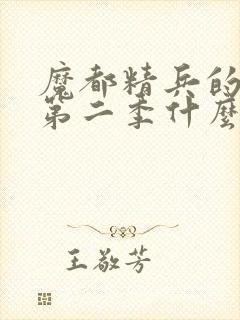 魔都精兵的
第二季什麼
王敬芳